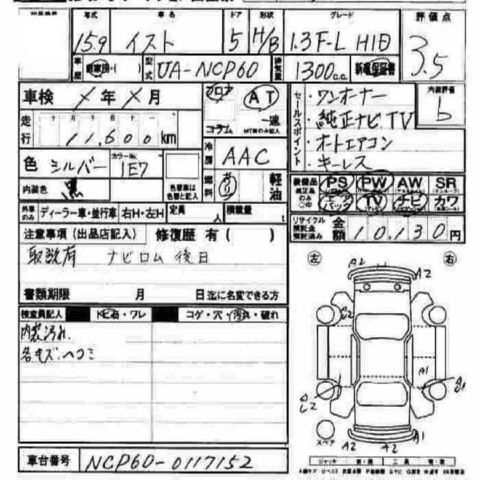 年式 車名 ドア 形状 グレード 評価点
15.9 イスト 5 H/B 1.3F-L HID 3.5
車歴 自家用・( ) 型式 UA-NCP60 排気量 1300c.c. 新車保証書 内装評価
車検 ×年×月 フロア AT セールスポイント ・ワンオーナー b
コラム 速 ・純正ナビTV
走行 11,600 km ・オートエアコン
色 シルバー カラーNo. 1E7 冷房 AAC ・キーレス
内装色 黒 燃料 軽油
装備品 PS PW AW SR
TV ナビ カワ
外車のみ ディーラー車・並行車 右H・左H 定員 人 積載量 t
リサイクル預託金 金額 10,130円
注意事項(出品店記入) 修復歴 有( )
取説有 ナビロム 後日
書類期限 月 日 迄に名変できる方
検査員記入 コゲ・穴・汚れ・破れ
内装汚れ
各キズ・ヘコミ
左 右
A2 A2
A1
A2 A2 A1
スペア
車台番号 NCP60-0117152